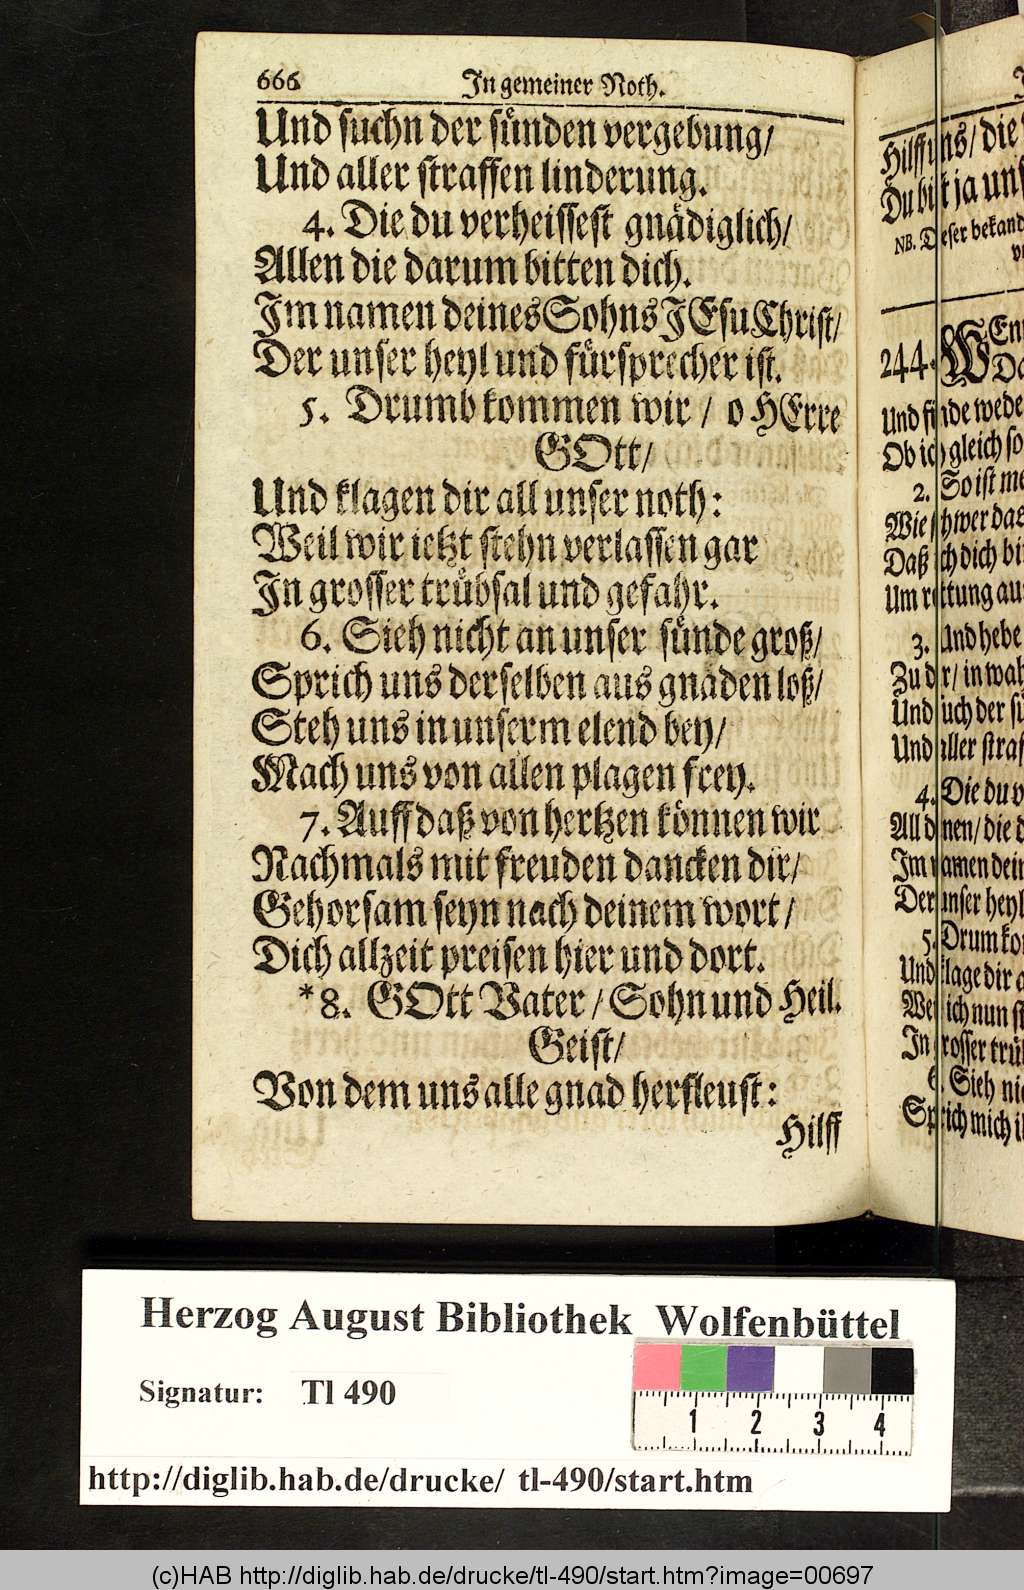 666. In gemeiner Noth.
Und suchn der sünden vergebung/
Und aller straffen linderung.
4. Die du verheissest gnädiglich/
Allen die darum bitten dich.
Im namen deines Sohns JEsu Christ/
Der unser heyl und fürsprecher ist.
5. Drumb kommen wir / o HErre
GOtt/
Und klagen dir all unser noth:
Weil wir ietzt stehn verlassen gar
In grosser trübsal und gefahr.
6. Sieh nicht an unser sünde groß/
Sprich uns derselben aus gnaden loß/
Steh uns in unserm elend bey/
Mach uns von allen plagen frey.
7. Auff daß von hertzen können wir
Nachmals mit freuden dancken dir/
Gehorsam seyn nach deinem wort /
Dich allzeit preisen hier und dort.
*8. GOtt Vater / Sohn und Heil.
Geist/
Von dem uns alle gnad herfleust:
Hilff
Hilff uns/ die
Du bist ja
NB. Dieser
244. WEnn
Und finde
Ob ich gleich
2. So ist
Wie schwer das
Daß ich dich
Um rettung
3. Und hebe
Zu dir/ in
Und such der
Und aller
4. Die du
All denen/ die
Im namen
Der unser heyl
5. Drum
Und klage dir
Weil ich nun
In grosser
6. Sieh
Sprich mich
Herzog August Bibliothek Wolfenbüttel
Signatur: Tl 490
1 2 3 4
http://diglib.hab.de/drucke/ tl-490/start.htm
(c)HAB http://diglib.hab.de/drucke/tl-490/start.htm?image=00697